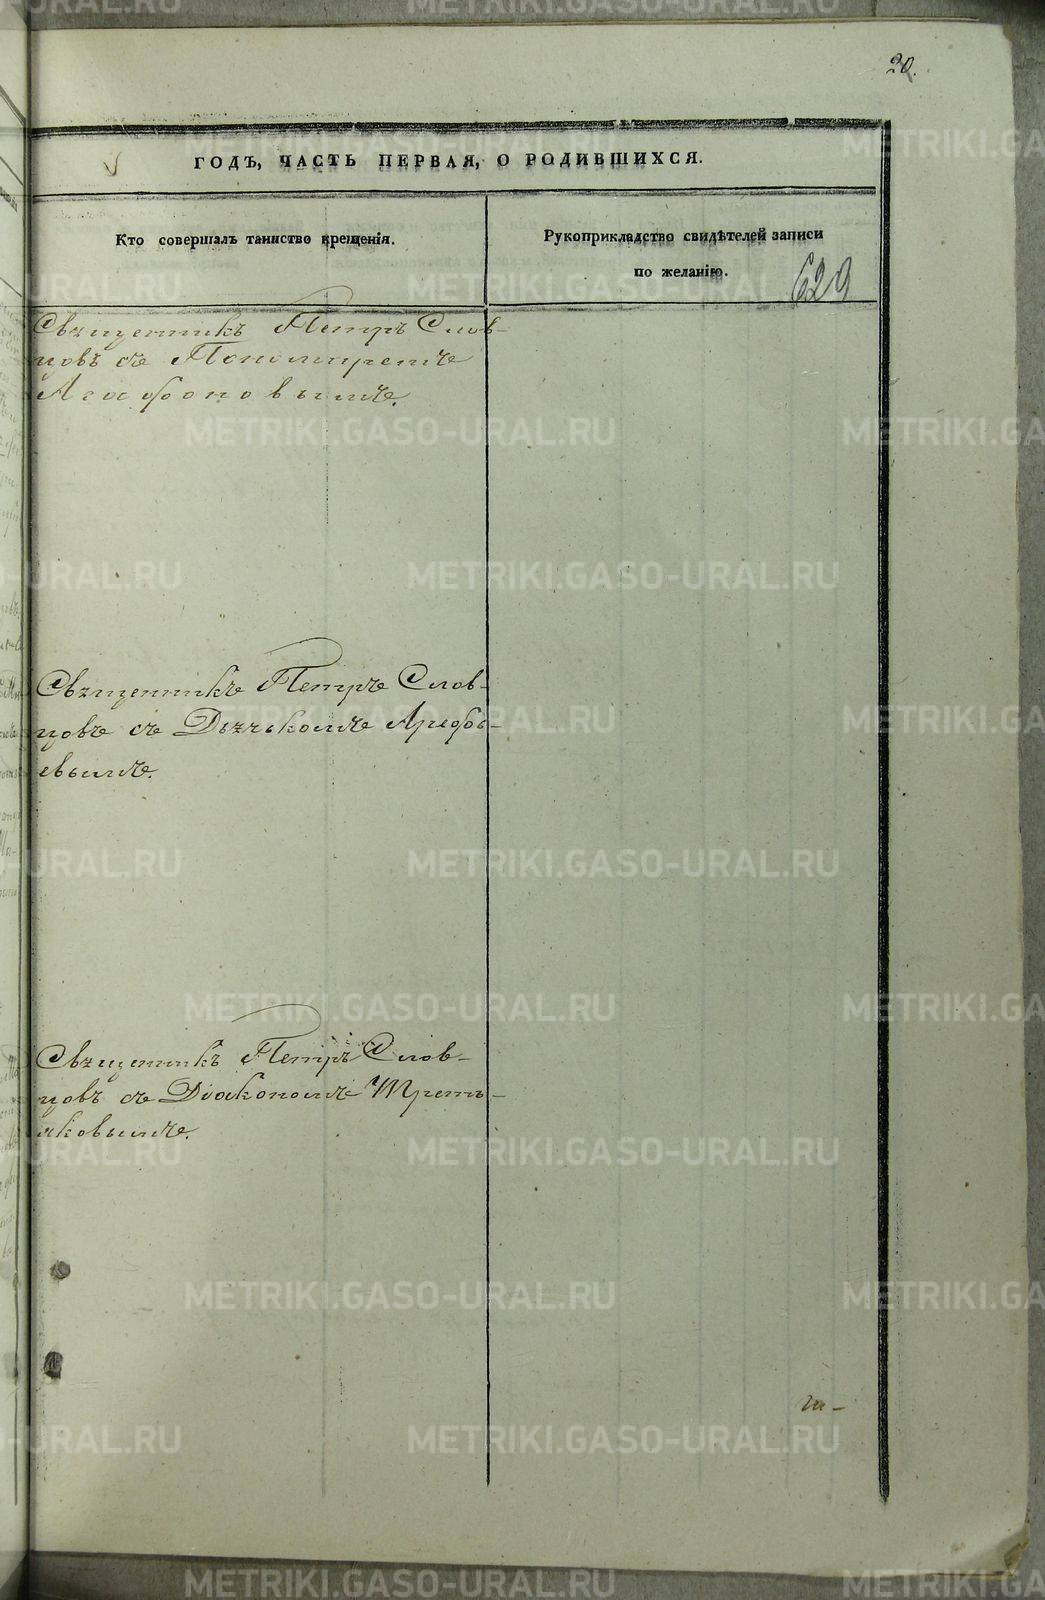 20.
ГОДЪ, ЧАСТЬ ПЕРВАЯ, О РОДИВШИХСЯ.
Кто совершалъ таинство крещенія.
Рукоприкладство свидѣтелей записи
по желанію.
629
Священникъ Петръ Слов-
цовъ съ Пономаремъ
Агафоновымъ.
Священникъ Петръ Слов-
цовъ съ Дьячькомъ Арефь-
евымъ.
Священникъ Петръ Слов-
цовъ съ Діакономъ Треть-
яковымъ.
METRIKI.GASO-URAL.RU